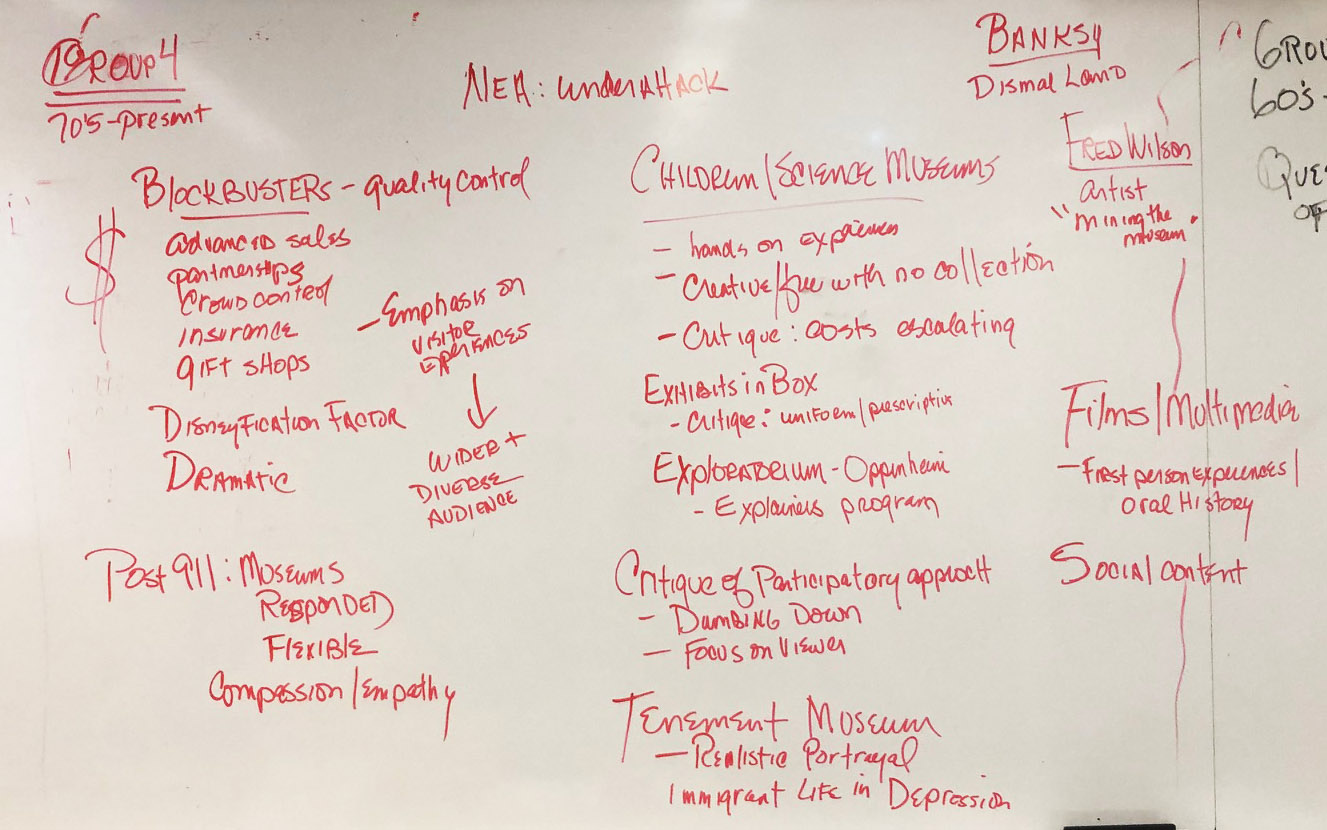 GROUP 4
70's-present
NEA: under AttACK
BANKSY
Dismal Land
FRED Wilson
artist
"mining the
museum"
BlockBUSTERS - quality control
$
advanced sales
partnerships
Crowd control
insurance
gift shops
- Emphasis on
VISITOR
EXPERIENCES
WIDER +
DIVERSE
AUDIENCE
Disneyfication Factor
Dramatic
Post 911: Museums
Responded
Flexible
Compassion/Empathy
Children/Science Museums
- hands on experiences
- Creative/free with no collection
- Critique: costs escalating
Exhibits in Box
- Critique: uniform/prescriptive
Exploratorium - Oppenheim
- Explainers program
Critique of Participatory approch
- Dumbing Down
- Focus on Viewer
Tenement Museum
- Realistic Portrayal
Immigrant Life in Depression
Films/Multimedia
- First person experiences/
Oral History
Social content
GROU
60's -
QUE
OF